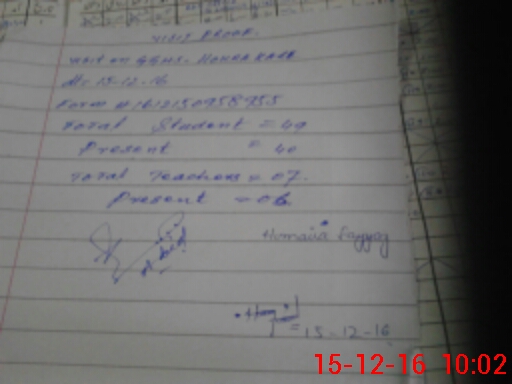 VISIT PROOF.
Visit on GGHS-
dt: 15-12-16
Form # 1612130958955
Total Student = 49
Present = 40
Total Teachers = 07.
Present = 06.
Humaira
= 15-12-16
15-12-16 10:02